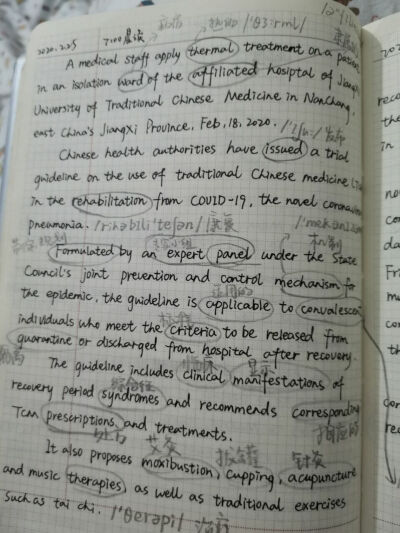 2020.2.25 7:00晨读 /ˈθɜːrml/
A medical staff apply thermal treatment on a patie
in an isolation ward of the affiliated hosiptal of Jiangx
University of Traditional Chinese Medicine in NanChang,
east China's JiangXi Province, Feb, 18, 2020.
/ˈɪʃuː/ 发布
Chinese health authorities have issued a trial
guideline on the use of traditional Chinese medicine (T
in the rehabilitation from COVID-19, the novel coronavir
pneumonia. /rihəbiliˈteʃən/ 康复 /ˈmekənizəm
机制
Formulated by an expert panel under the State
Council's joint prevention and control mechanism for
适用的
the epidemic, the guideline is applicable to convalescent
标准
individuals who meet the criteria to be released from
quarantine or discharged from hospital after recovery.
临床 显示
The guideline includes clinical manifestations of
综合症
recovery period syndromes and recommends corresponding
相应的
Tcm prescriptions and treatments.
处方 艾灸 拔火罐 针灸
It also proposes moxibustion, cupping, acupuncture
and music therapies, as well as traditional exercises
such as tai chi. /ˈθerəpi/ 治疗